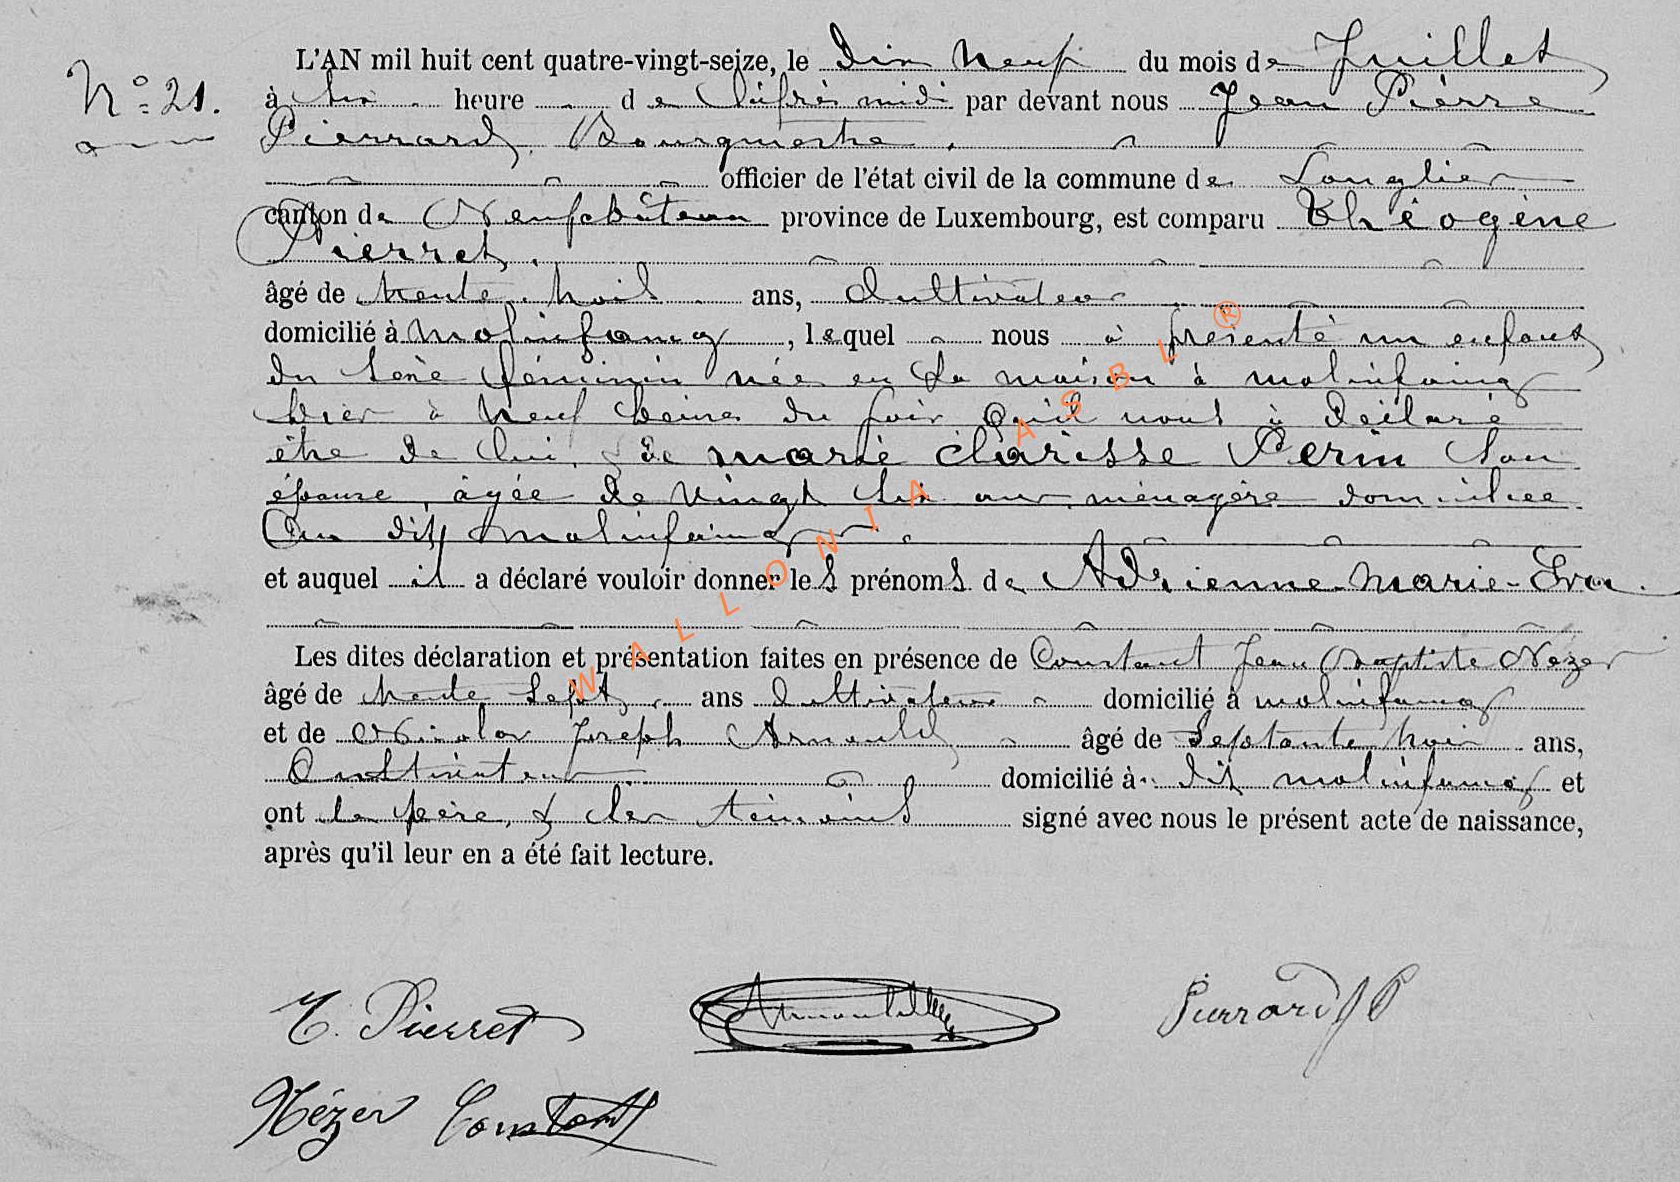 N° 21.
L'AN mil huit cent quatre-vingt-seize, le dix neuf du mois de Juillet
à six heure de l'après midi par devant nous Jean Pierre
Pierrard, Bourgmestre.
officier de l'état civil de la commune de Longlier
canton de Neufchâteau province de Luxembourg, est comparu Théogène
Pierret.
âgé de trente trois ans, Cultivateur
domicilié à Molinfaing, lequel nous à présenté un enfant
du sexe féminin née en sa maison à Molinfaing
hier à neuf heures du soir qu'il nous à déclaré
être de lui, & de Marie Clarisse Perin son
épouse, âgée de vingt six ans ménagère domiciliée
au dit Molinfaing
et auquel il a déclaré vouloir donner les prénoms de Adrienne-Marie-Iva.
Les dites déclaration et présentation faites en présence de Constant Jean Baptiste Nézer
âgé de trente sept ans Cultivateur domicilié à Molinfaing
et de Nicolas Joseph Arnould âgé de septante trois ans,
Cultivateur domicilié à dit Molinfaing et
ont le père, & les témoins signé avec nous le présent acte de naissance,
après qu'il leur en a été fait lecture.
T. Pierret Arnould Pierrard JP
Nézer Constant
WALLONIA ASBL ®